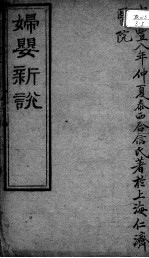 豐八年仲夏泰西合信氏著於上海仁濟
院
婦嬰新說